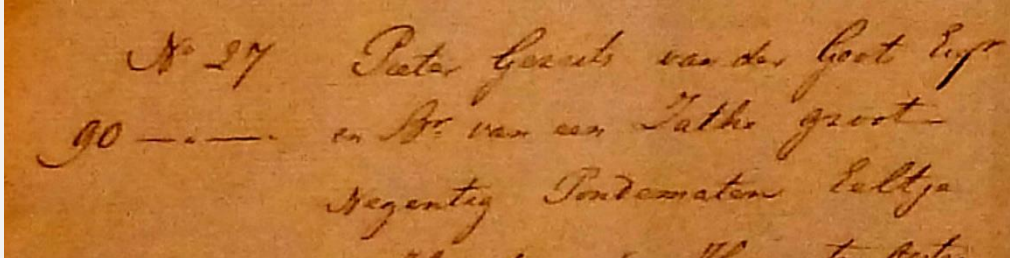 No 27 Pieter Gerrits van der Goot Eygr
90 —.—. en Br. van een Zathe groot
Negentig Pondematen Eeltje